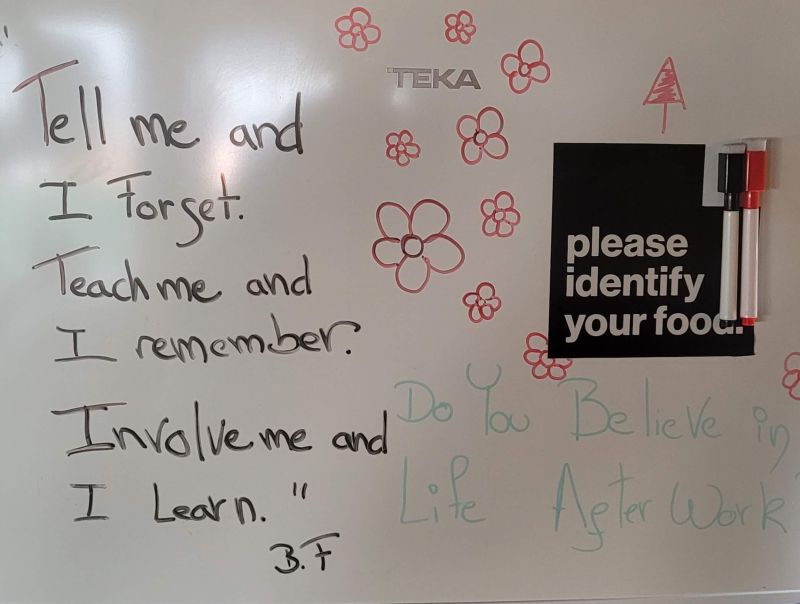 TEKA
Tell me and
I Forget.
Teach me and
I remember.
Involve me and
I Learn."
B.F
please
identify
your food.
Do You Believe in
Life After Work